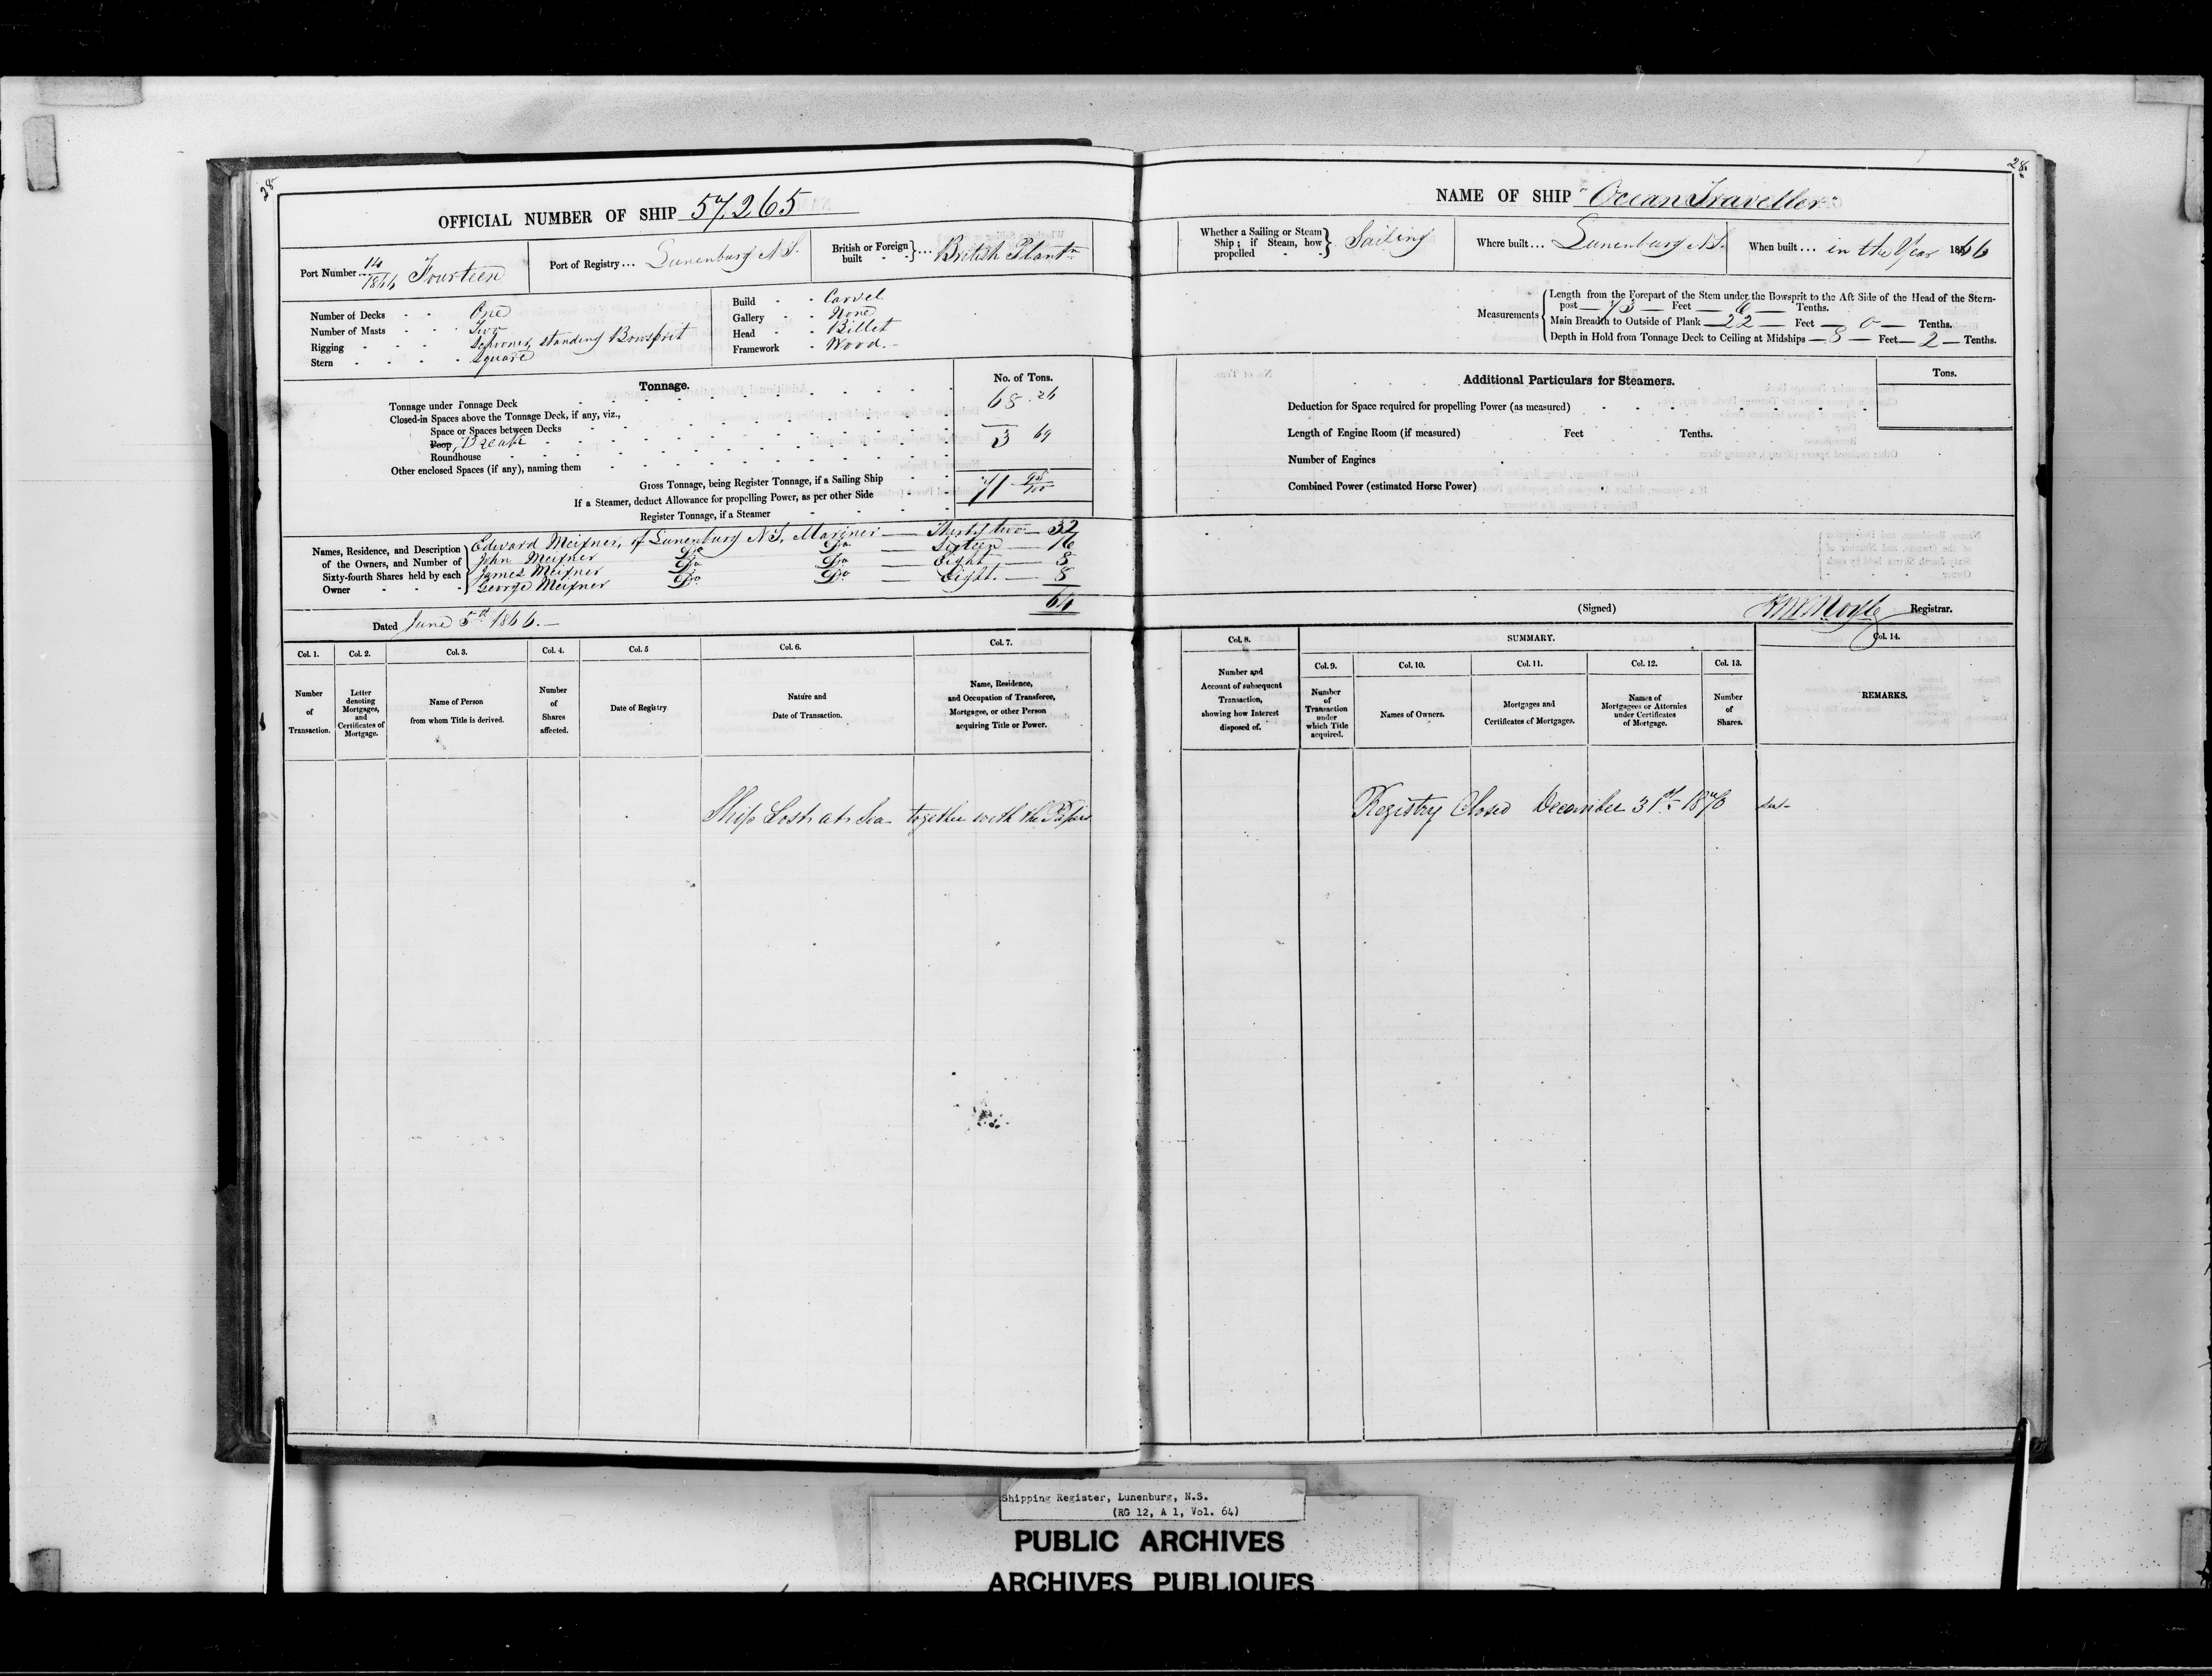 28
OFFICIAL NUMBER OF SHIP 57.265
Port Number... 14/1866 Fourteen
Port of Registry... Lunenburg N.S.
British or Foreign built } ... British Plantn
Number of Decks - - One
Number of Masts - - Two
Rigging - - - Schooner, standing Bowsprit
Stern - - - - Square
Build - - Carvel
Gallery - - None
Head - - Billet
Framework - Wood.
Tonnage.
No. of Tons.
Tonnage under Tonnage Deck 68.26
Closed-in Spaces above the Tonnage Deck, if any, viz.,
Space or Spaces between Decks
Poop, Break 3 69
Roundhouse
Other enclosed Spaces (if any), naming them
Gross Tonnage, being Register Tonnage, if a Sailing Ship 71 95/100
If a Steamer, deduct Allowance for propelling Power, as per other Side
Register Tonnage, if a Steamer
Names, Residence, and Description of the Owners, and Number of Sixty-fourth Shares held by each Owner
Edward Meixner, of Lunenburg N.S, Mariner — Thirty two — 32
John Meixner Do Do — Sixteen — 16
James Meixner Do Do — Eight — 8
George Meixner Do Do — Eight. — 8
64
Dated June 5th 1866.—
Col. 1. Number of Transaction.
Col. 2. Letter denoting Mortgages, and Certificates of Mortgage.
Col. 3. Name of Person from whom Title is derived.
Col. 4. Number of Shares affected.
Col. 5 Date of Registry
Col. 6. Nature and Date of Transaction.
Col. 7. Name, Residence, and Occupation of Transferee, Mortgagee, or other Person acquiring Title or Power.
Ship Lost at Sea together with the Papers
28
NAME OF SHIP "Ocean Traveller"
Whether a Sailing or Steam Ship; if Steam, how propelled - - } Sailing
Where built... Lunenburg N.S.
When built... in the Year 1866
Measurements
Length from the Forepart of the Stem under the Bowsprit to the Aft Side of the Head of the Stern-
post — 73 — Feet — 6 — Tenths.
Main Breadth to Outside of Plank — 22 — Feet — 0 — Tenths.
Depth in Hold from Tonnage Deck to Ceiling at Midships — 8 — Feet — 2 — Tenths.
Additional Particulars for Steamers.
Tons.
Deduction for Space required for propelling Power (as measured)
Length of Engine Room (if measured) Feet Tenths.
Number of Engines
Combined Power (estimated Horse Power)
(Signed) Registrar.
Col. 8. Number and Account of subsequent Transaction, showing how Interest disposed of.
SUMMARY.
Col. 9. Number of Transaction under which Title acquired.
Col. 10. Names of Owners.
Col. 11. Mortgages and Certificates of Mortgages.
Col. 12. Names of Mortgagees or Attornies under Certificates of Mortgage.
Col. 13. Number of Shares.
Col. 14. REMARKS.
Registry Closed December 31st 1870
Shipping Register, Lunenburg, N.S.
(RG 12, A 1, Vol. 64)
PUBLIC ARCHIVES
ARCHIVES PUBLIQUES